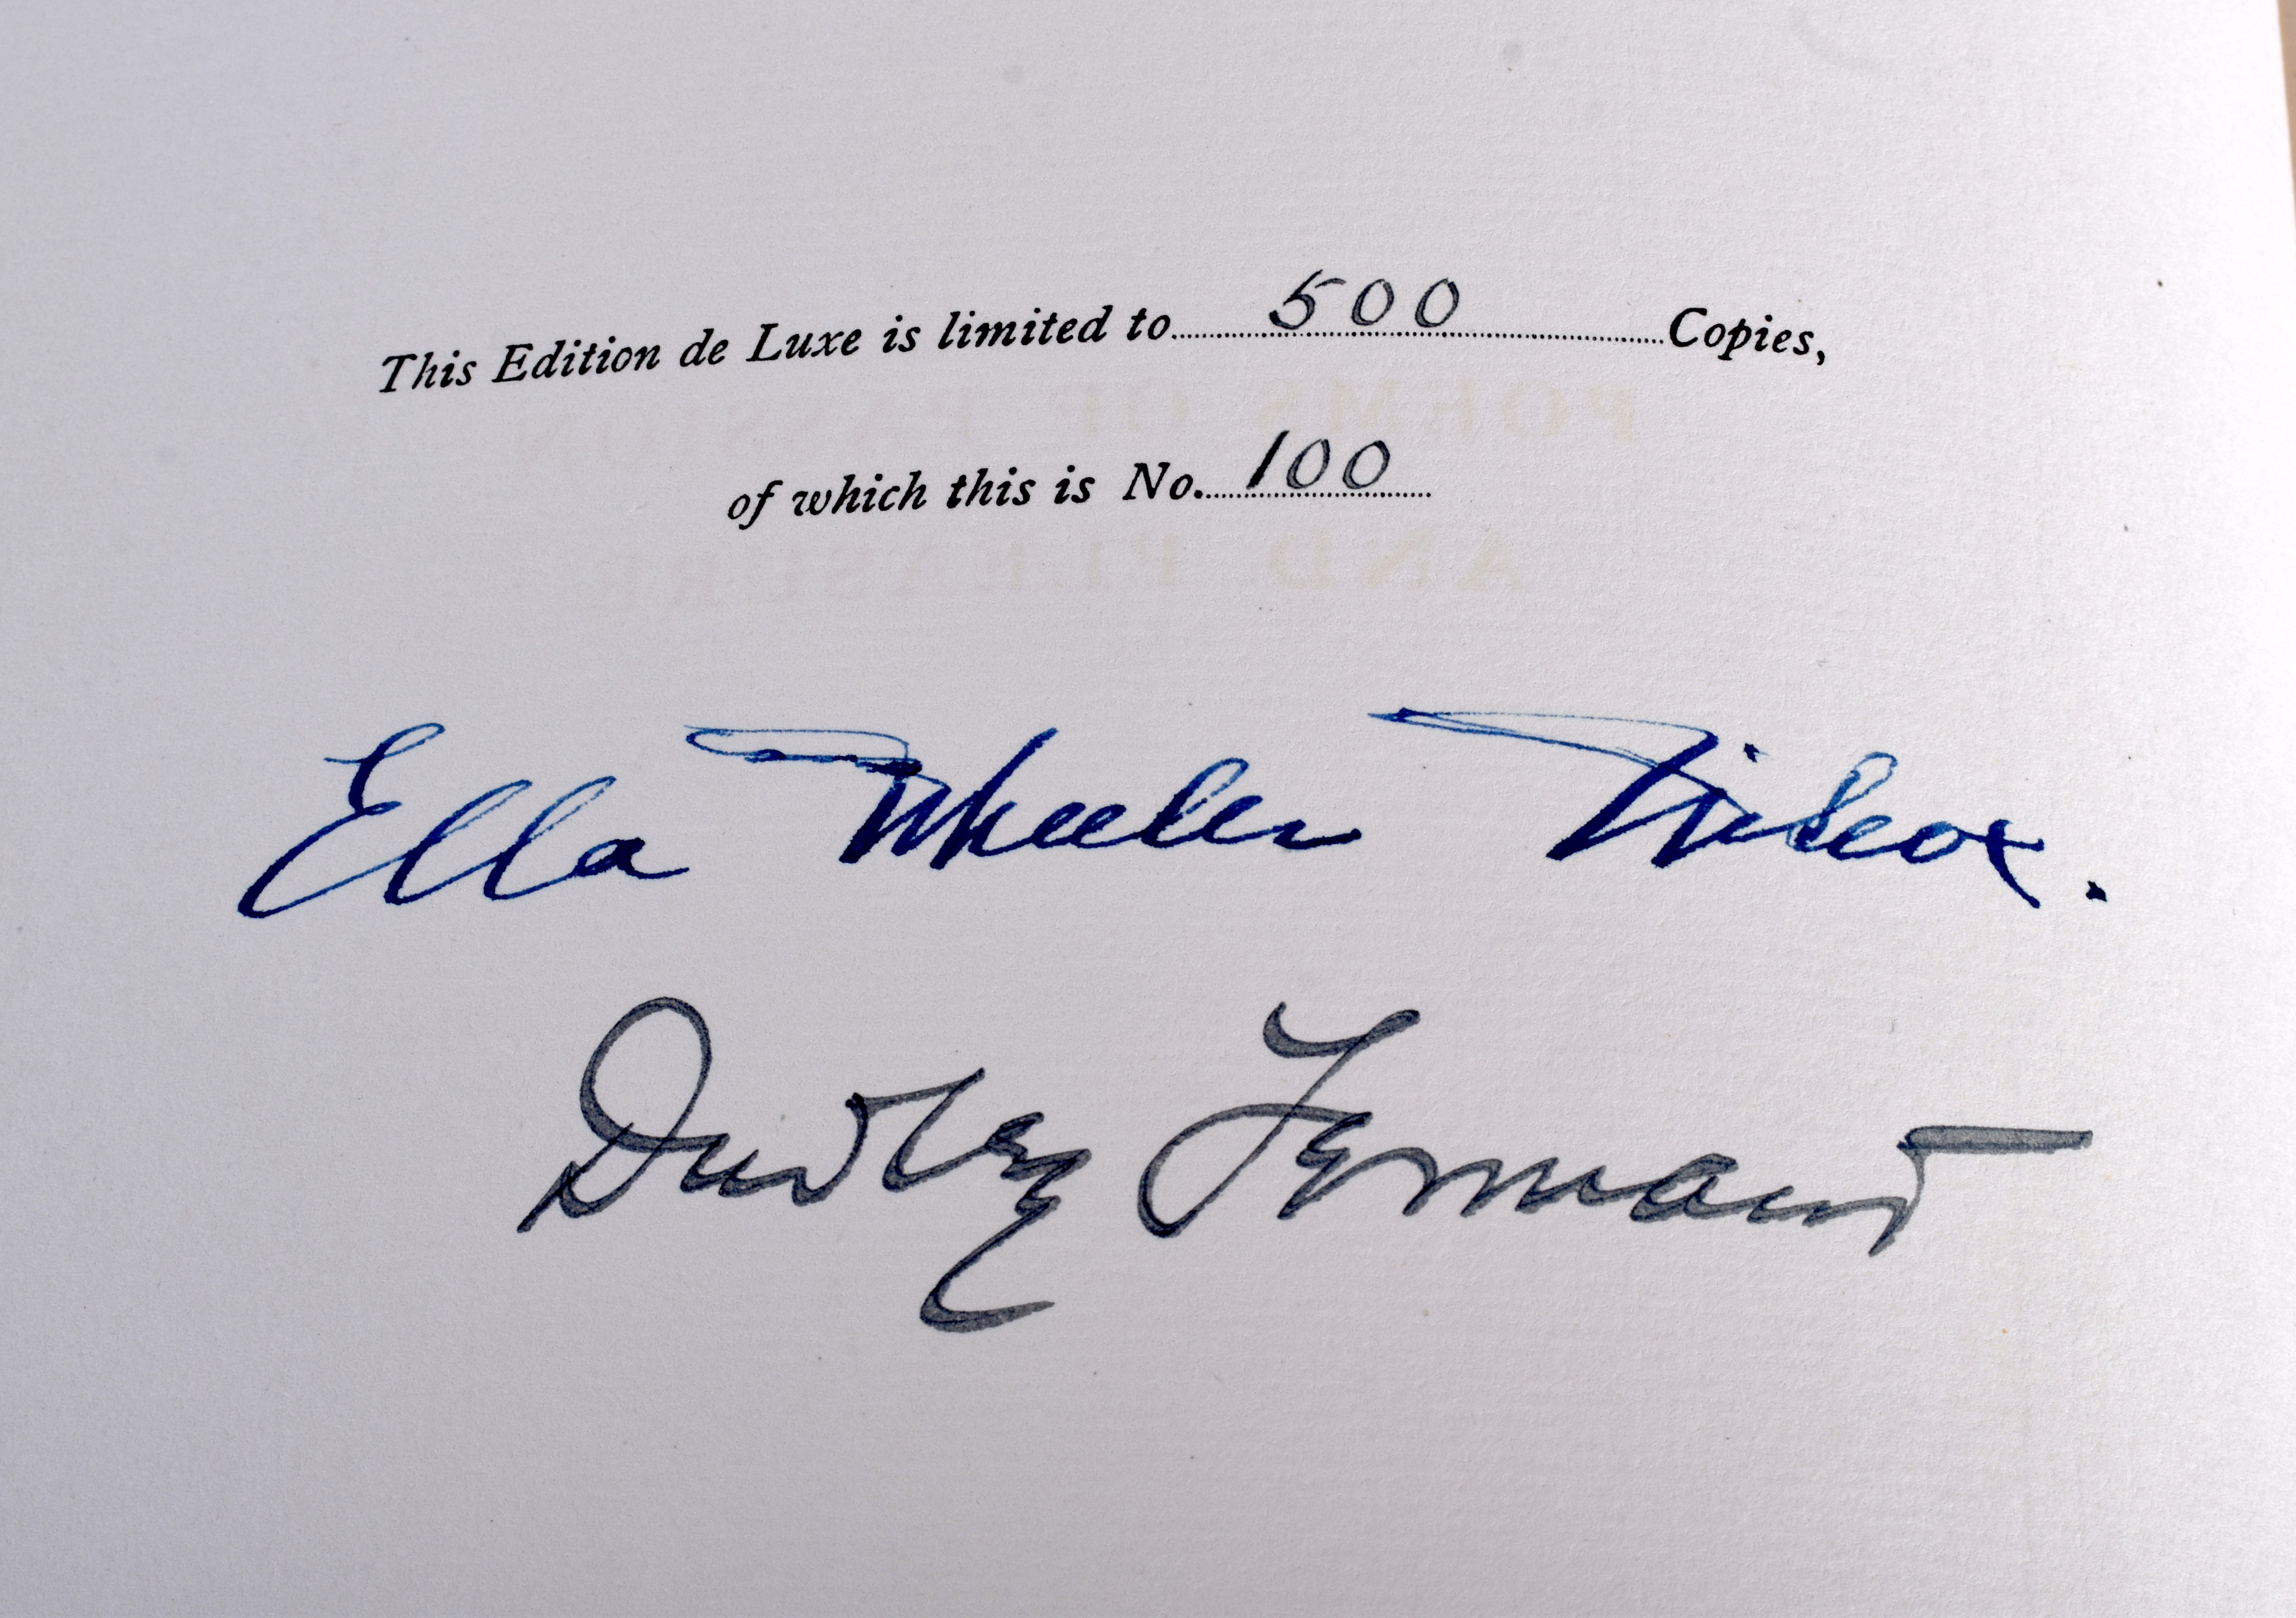 This Edition de Luxe is limited to 500 Copies,
of which this is No. 100
POEMS OF PASSION
AND PLEASURE
Ella Wheeler Wilcox.
Dudley Tennant